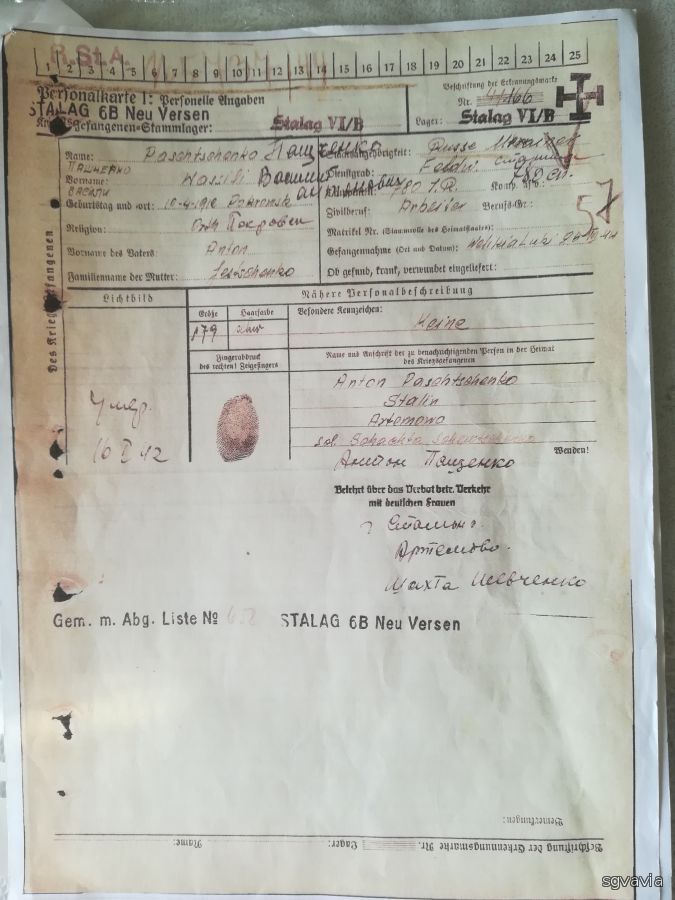 R.St.A.
1 2 3 4 5 6 7 8 9 10 11 12 13 14 15 16 17 18 19 20 21 22 23 24 25
Personalkarte I: Personelle Angaben
STALAG 6B Neu Versen
Kriegsgefangenen-Stammlager: Stalag VI/B
Beschriftung der Erkennungsmarke
Nr.
Lager: Stalag VI/B
Des Kriegsgefangenen
Name: Paschtschenko Пащенко
Пащенко
Vorname: Wassili Василий
Василий Антонович
Geburtstag und -ort:
Religion:
Vorname des Vaters: Anton
Familienname der Mutter:
Staatsangehörigkeit: Russe
Dienstgrad: Feldw.
Truppenteil: 780 I.R. Komp. usw.:
Zivilberuf: Arbeiter Berufs-Gr.:
57
Matrikel Nr. (Stammrolle des Heimatstaates):
Gefangennahme (Ort und Datum):
Ob gesund, krank, verwundet eingeliefert:
Lichtbild
Nähere Personalbeschreibung
Größe Haarfarbe Besondere Kennzeichen:
179 Keine
Fingerabdruck
des rechten! Zeigefingers
Name und Anschrift der zu benachrichtigenden Person in der Heimat
des Kriegsgefangenen
Anton Paschtschenko
Stalin
Artomowo
Schachta
Антон Пащенко
Wenden!
Умер.
16 I 42
Belehrt über das Verbot betr. Verkehr
mit deutschen Frauen
г Сталино.
Артемово.
Шахта Шевченко
Gem. m. Abg. Liste № 652 STALAG 6B Neu Versen
Bemerkungen:
Beschriftung der Erkennungsmarke Nr. Lager: Name:
sgvavia